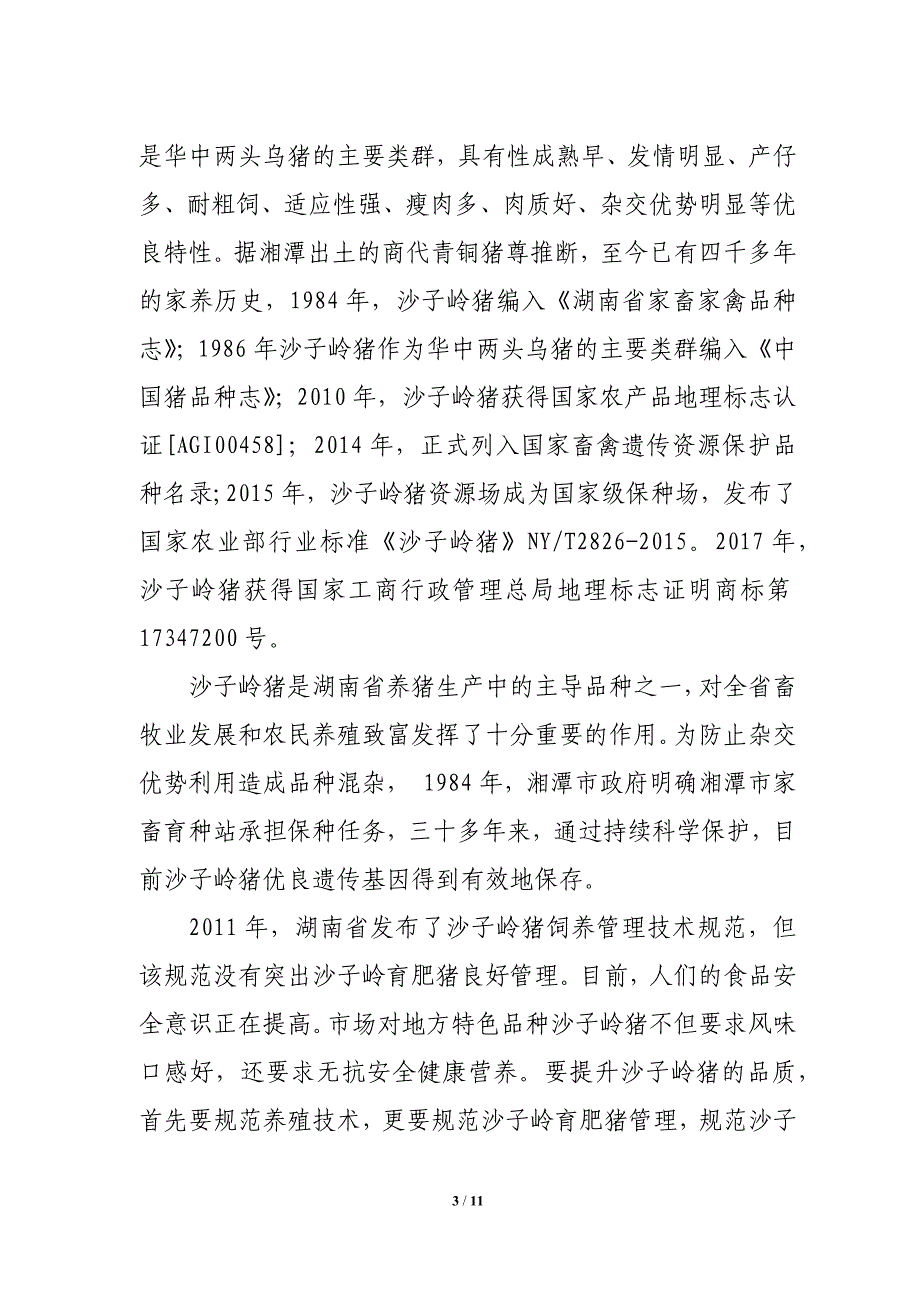 是华中两头乌猪的主要类群，具有性成熟早、发情明显、产仔
多、耐粗饲、适应性强、瘦肉多、肉质好、杂交优势明显等优
良特性。据湘潭出土的商代青铜猪尊推断，至今已有四千多年
的家养历史，1984年，沙子岭猪编入《湖南省家畜家禽品种
志》；1986年沙子岭猪作为华中两头乌猪的主要类群编入《中
国猪品种志》；2010年，沙子岭猪获得国家农产品地理标志认
证[AGI00458]；2014年，正式列入国家畜禽遗传资源保护品
种名录;2015年，沙子岭猪资源场成为国家级保种场，发布了
国家农业部行业标准《沙子岭猪》NY/T2826-2015。2017年，
沙子岭猪获得国家工商行政管理总局地理标志证明商标第
17347200号。
沙子岭猪是湖南省养猪生产中的主导品种之一，对全省畜
牧业发展和农民养殖致富发挥了十分重要的作用。为防止杂交
优势利用造成品种混杂， 1984年，湘潭市政府明确湘潭市家
畜育种站承担保种任务，三十多年来，通过持续科学保护，目
前沙子岭猪优良遗传基因得到有效地保存。
2011年，湖南省发布了沙子岭猪饲养管理技术规范，但
该规范没有突出沙子岭育肥猪良好管理。目前，人们的食品安
全意识正在提高。市场对地方特色品种沙子岭猪不但要求风味
口感好，还要求无抗安全健康营养。要提升沙子岭猪的品质，
首先要规范养殖技术，更要规范沙子岭育肥猪管理，规范沙子
3 / 11